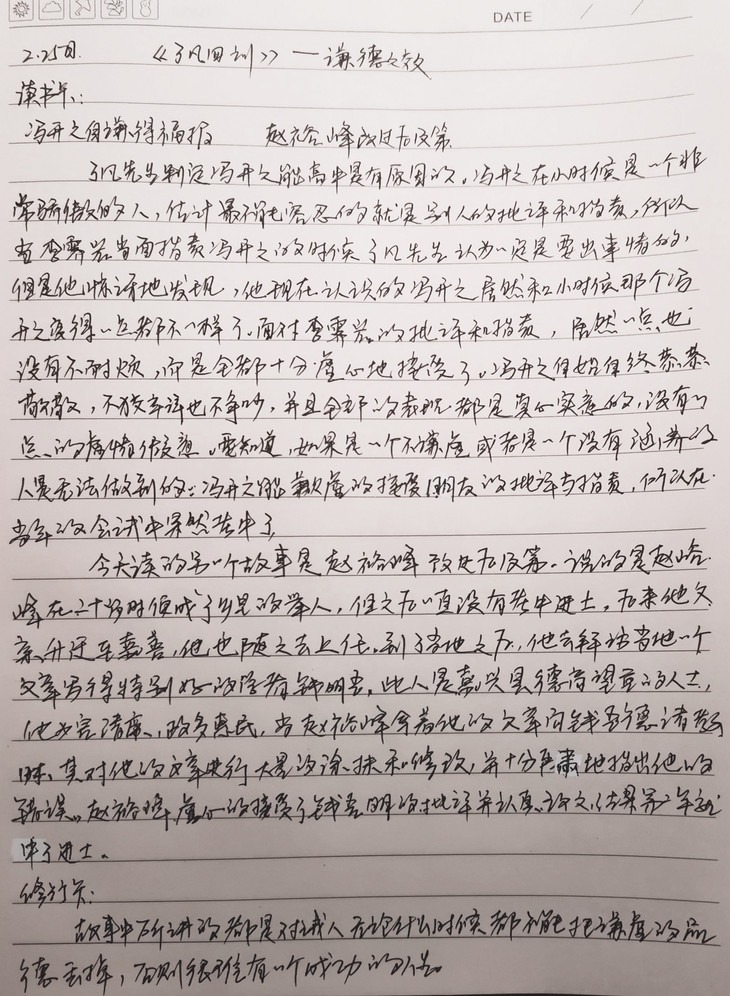 DATE / /
2.25日. 《了凡四训》—谦德之效
读书卡:
冯开之自谦得福报 赵裕峰改过后及第
了凡先生判定冯开之能高中是有原因的。冯开之在小时候是一个非
常骄傲的人,估计最不能容忍的就是别人的批评和指责,所以
当李霁岩当面指责冯开之的时候了凡先生认为一定是要出事情的,
但是他惊讶地发现,他现在认识的冯开之居然和小时候那个冯
开之变得一点都不一样了。面对李霁岩的批评和指责,居然一点也
没有不耐烦,而是全都十分虚心地接受了。冯开之自始自终恭恭
敬敬,不狡辩也不争吵,并且全部的表现都是真心实意的,没有一
点的虚情假意。要知道,如果是一个不谦虚或者是一个没有涵养的
人是无法做到的:冯开之能谦虚的接受朋友的批评与指责,所以在
当年的会试中果然若中了
今天读的另一个故事是赵裕峰改过后及第。说的是赵裕
峰在二十岁时便成了乡里的举人,但之后一直没有若中进士,后来他父
亲升迁至嘉善,他也随之去上任。到了当地之后,他去拜访当地一个
文章写得特别好的学者钱明吾,此人是嘉兴里德高望重的人士,
他为官清廉、政多惠民,当赵裕峰拿着他的文章向钱吾德请教
时,其对他的文章进行大量的涂抹和修改,并十分严肃地指出他的
错误。赵裕峰虚心的接受了钱吾明的批评并认真改文,结果第二年就
中了进士。
修行卡:
故事中所讲的都是对我人无论什么时候都不能把谦虚的品
德丢掉,否则很难有一个成功的人生。